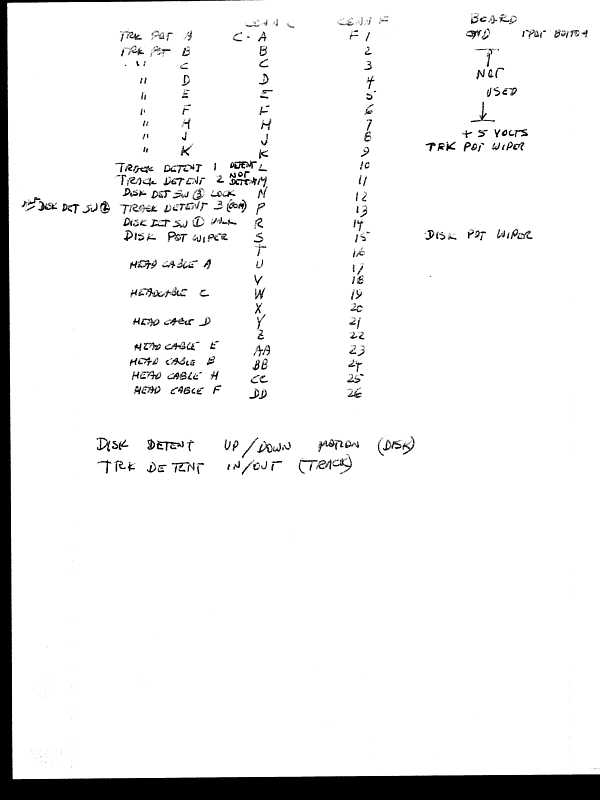 CONN C CONN F BOARD
TRK POT A C - A F 1 GND
TRK POT B B 2
" " C C 3
" D D 4 NOT
" E E 5 USED
" F F 6
" H H 7
" J J 8 + 5 VOLTS
" K K 9 TRK POT WIPER
TRACK DETENT 1 DETENT L 10
TRACK DETENT 2 NOT DETENT M 11
DISK DET SW ③ LOCK N 12
DISK DET SW ② TRACK DETENT 3 (COM) P 13
DISK DET SW ① R 14
DISK POT WIPER S 15 DISK POT WIPER
T 16
HEAD CABLE A U 17
V 18
HEAD CABLE C W 19
X 20
HEAD CABLE D Y 21
Z 22
HEAD CABLE E AA 23
HEAD CABLE B BB 24
HEAD CABLE H CC 25
HEAD CABLE F DD 26
DISK DETENT UP/DOWN MOTION (DISK)
TRK DETENT IN/OUT (TRACK)